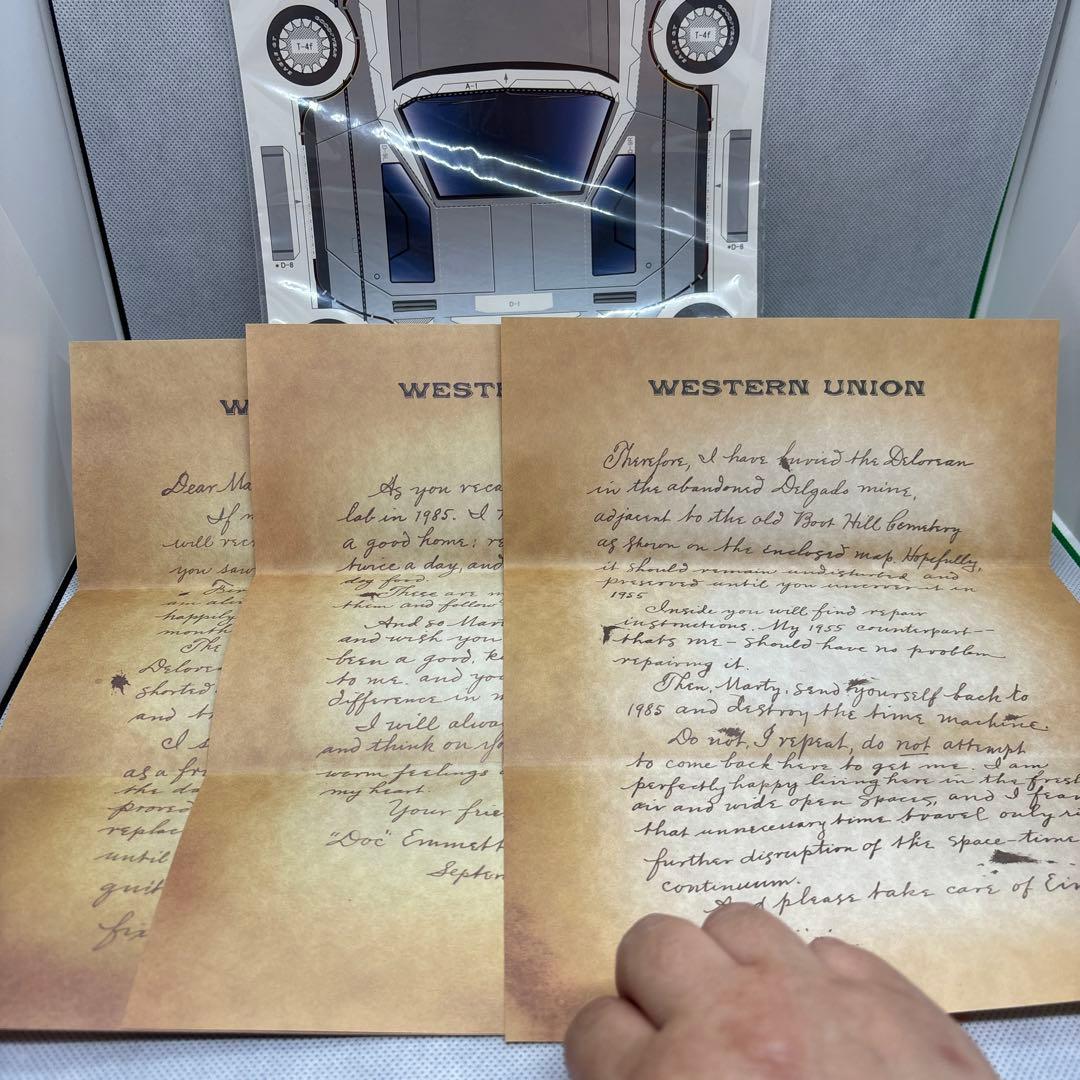 GOODYEAR
EAGLE GT
T-4f
GOODYEAR
EAGLE GT
T-4f
A-1
D-8
D-8
D-1
W
Dear Ma
If m
will rec
you saw
Fir
am aliv
happily
month
The
Delore
shorted
and t
I s
as a fr
the da
proved
repla
until
quit
fix
WESTE
As you reca
lab in 1985. I
a good home; re
twice a day, and
dog food.
These are m
them and follow
And so Mar
and wish you
been a good, k
to me, and yo
difference in m
I will alwa
and think on yo
warm feelings
my heart.
Your frie
"Doc" Emmett
Septem
WESTERN UNION
Therefore, I have buried the Delorean
in the abandoned Delgado mine,
adjacent to the old Boot Hill Cemetery
as shown on the enclosed map. Hopefully,
it should remain undisturbed and
preserved until you uncover it in
1955
Inside you will find repair
instructions. My 1955 counterpart—
thats me — should have no problem
repairing it.
Then, Marty, send yourself back to
1985 and destroy the time machine.
Do not, I repeat, do not attempt
to come back here to get me. I am
perfectly happy living here in the fresh
air and wide open spaces, and I fear
that unnecessary time travel only
further disruption of the space-time
continuum.
And please take care of Ein